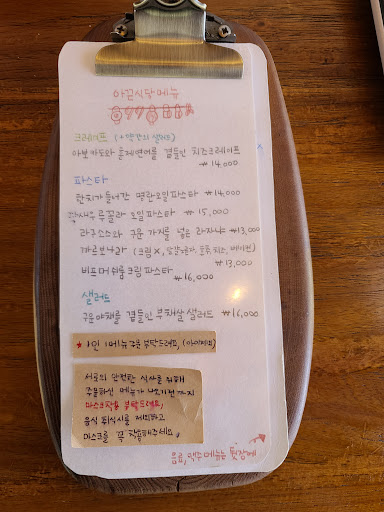 아끔식당 메뉴
크레이프 (+약간의 샐러드)
아보카도와 훈제연어를 곁들인 치즈크레이프
₩14,000
파스타
한치가 들어간 명란오일파스타 ₩14,000
새우 루꼴라 오일 파스타 ₩15,000
라구소스와 구운 가지를 넣은 라자냐 ₩13,000
까르보나라 (크림X, 달걀노른자, 후추, 치즈, 베이컨)
₩13,000
비프 머쉬룸 크림 파스타
₩16,000
샐러드
구운야채를 곁들인 부채살 샐러드 ₩16,000
* 1인 1메뉴 주문 부탁드려요, (아이제외)
서로의 안전한 식사를 위해
주문하신 메뉴가 나오기전까지
마스크착용 부탁드려요,
음식 취식시를 제외하고
마스크를 꼭 착용해주세요
음료, 맥주 메뉴는 뒷장에